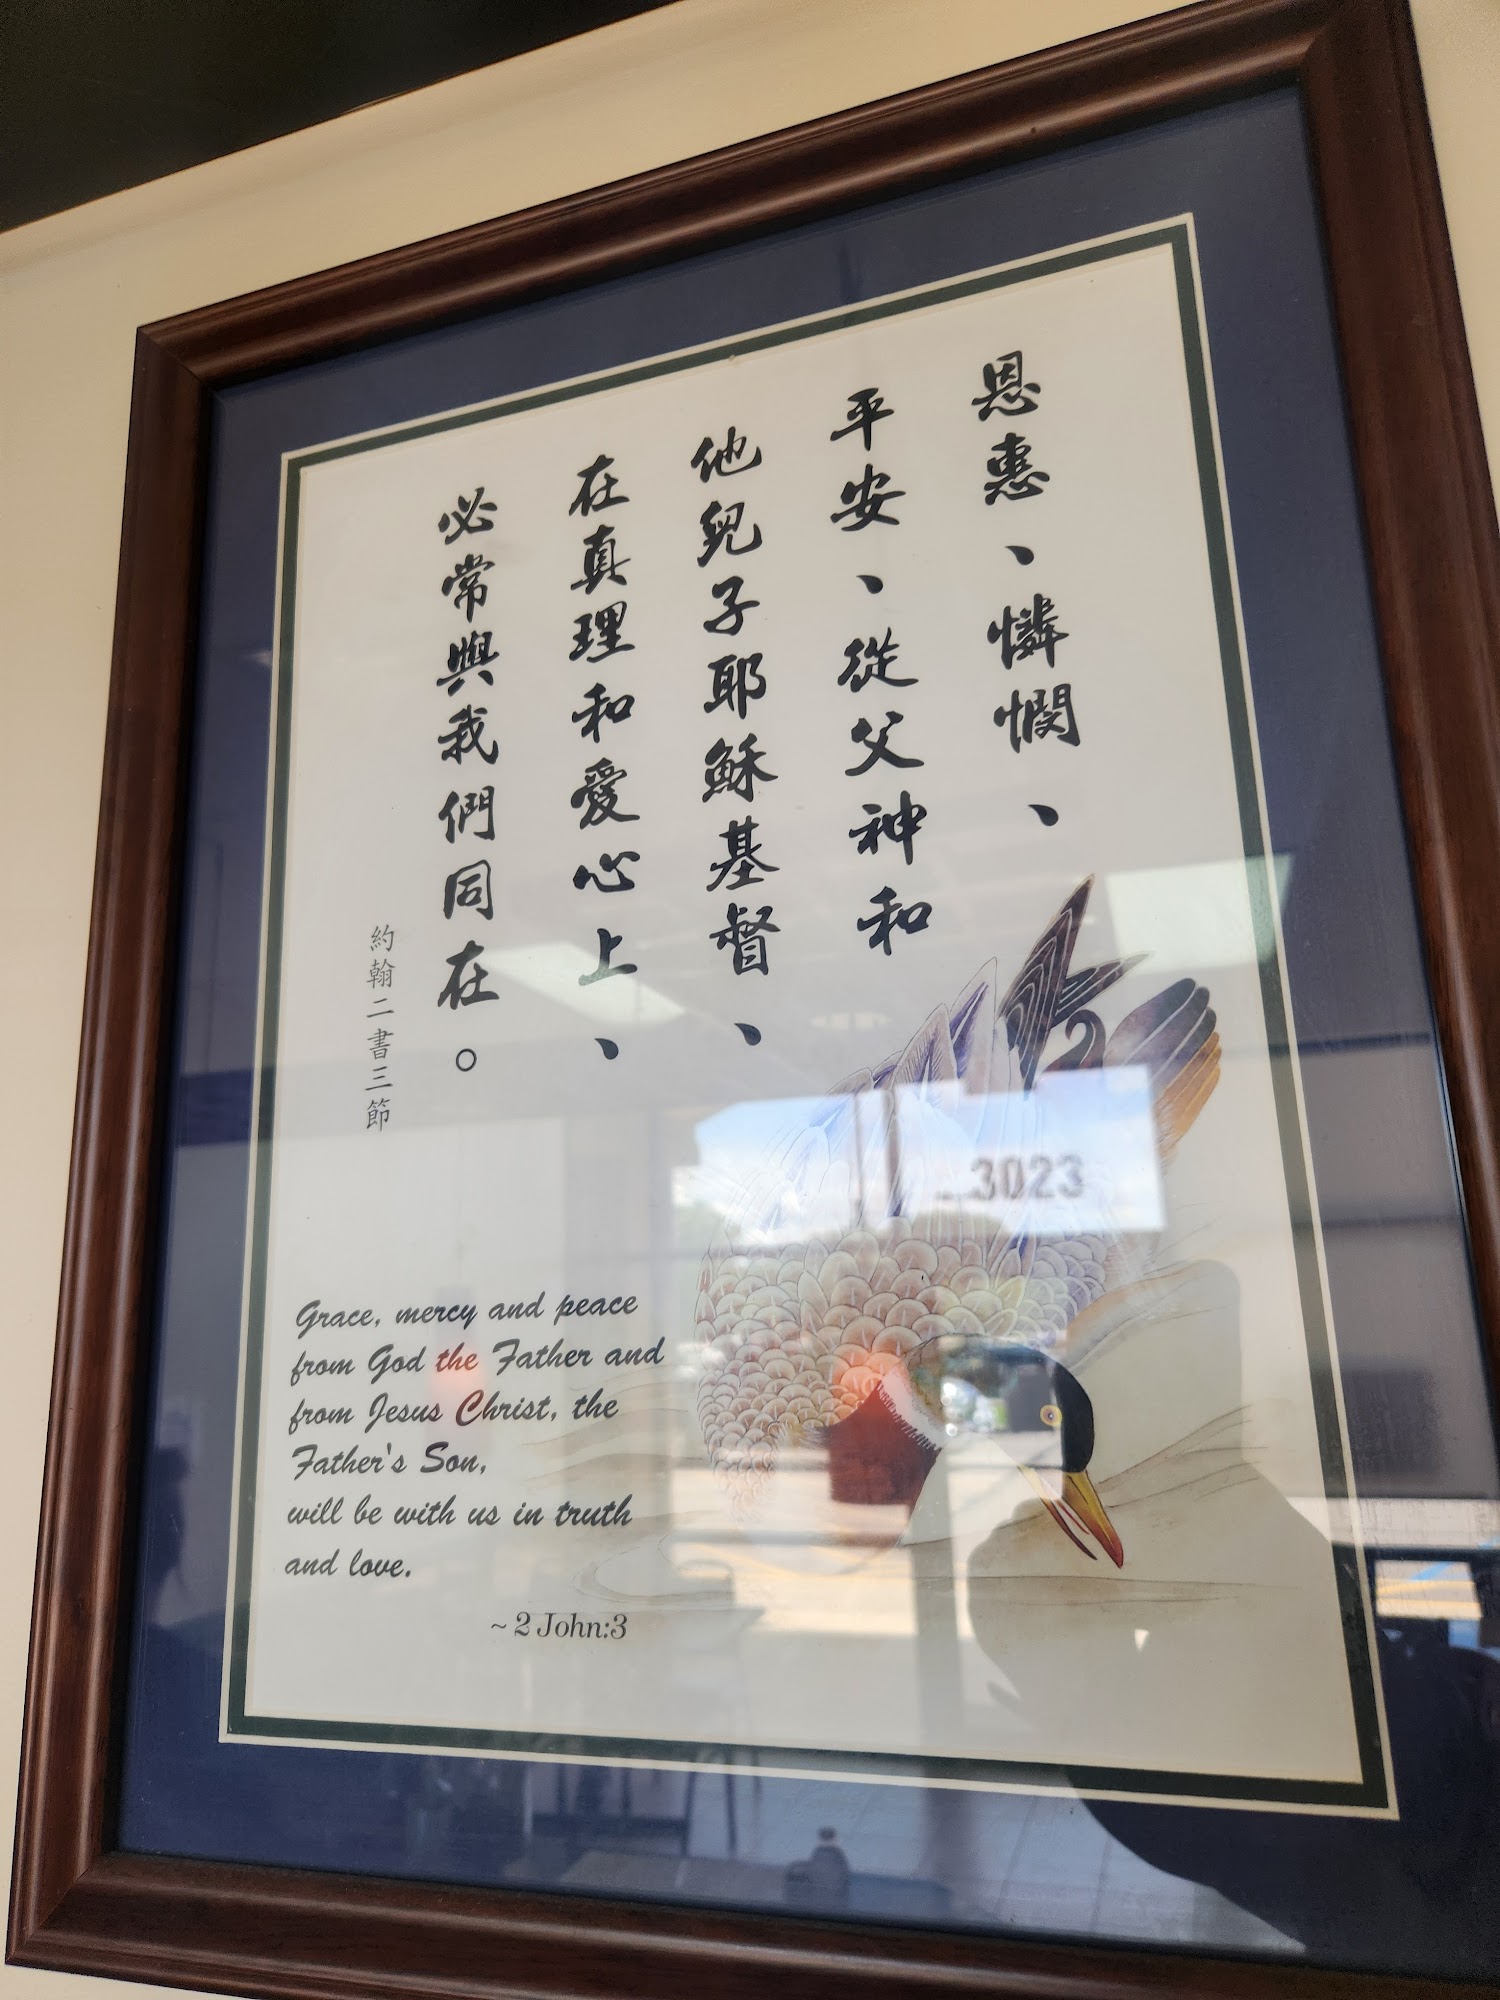 恩惠、憐憫、
平安、從父神和
他兒子耶穌基督、
在真理和愛心上、
必常與我們同在。
約翰二書三節
Grace, mercy and peace
from God the Father and
from Jesus Christ, the
Father's Son,
will be with us in truth
and love.
~ 2 John:3
3023